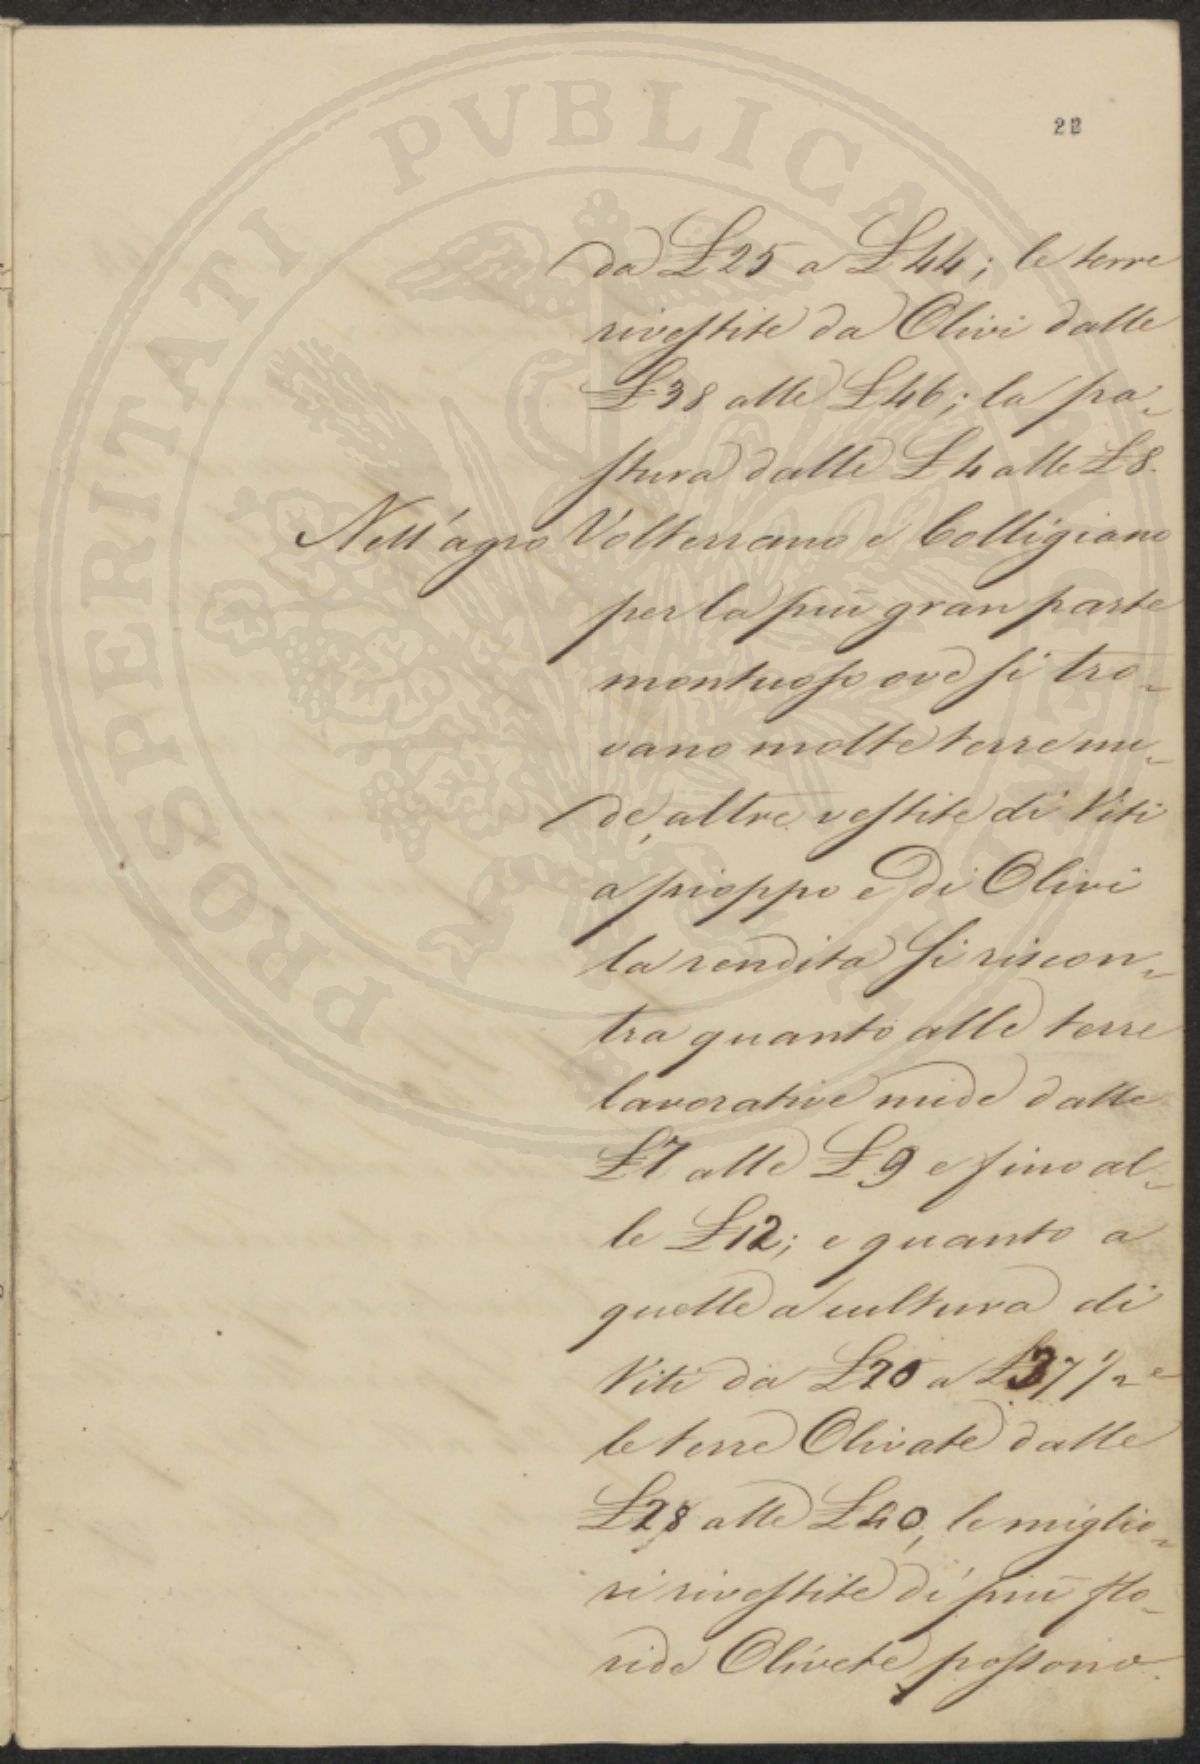 PROSPERITATI PUBLICAE AUGENDAE
22
da £ 25 a £ 44; le terre
rivestite da Olivi dalle
£ 38 alle £ 46; la pa-
stura dalle £ 4 alle £ 8.
Nell'agro Volterrano e Colligiano
per la più gran parte
montuoso ove si tro-
vano molte terre nu-
de, altre vestite di Viti
a pioppo e di Olivi
la rendita si riscon-
tra quanto alle terre
lavorative nude dalle
£ 7 alle £ 9 e fino al-
le £ 12; e quanto a
quelle a cultura di
Viti da £ 20 a £ 37 1/2 e
le terre Olivate dalle
£ 28 alle £ 40, le miglio-
ri rivestite di più flo-
ride Olivete possono